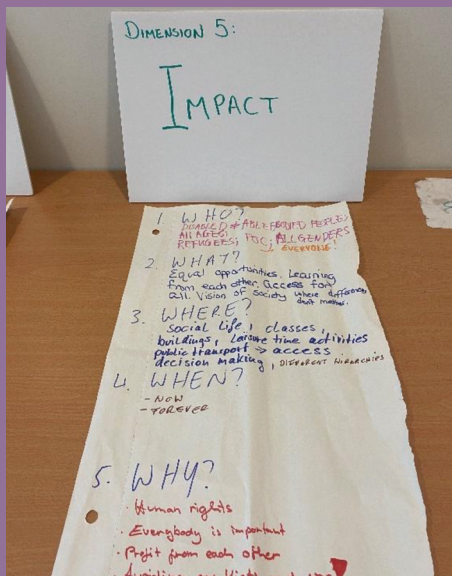 DIMENSION 5:
IMPACT
1. WHO?
DISABLED + ABLE BODIED PEOPLE;
ALL AGES;
REFUGEES; POC; ALL GENDERS
EVERYONE!
2. WHAT?
Equal opportunities. Learning
from each other. access for
all. Vision of society where differences
don't matter.
3. WHERE?
social life, classes,
buildings, leisure time activities
public transport → access
decision making, DIFFERENT HIERARCHIES
4. WHEN?
- NOW
- FOREVER
5. WHY?
· Human rights
· Everybody is important
· Profit from each other